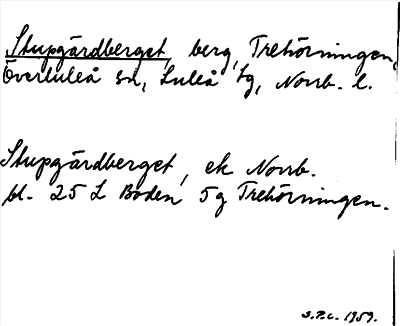 Stupgårdberget, berg, Trehörningen,
Överluleå sn, Luleå tg, Norrb. l.
Stupgårdberget, ek Norrb.
bl. 25 L Boden 5g Trehörningen.
S.P.C. 1959.